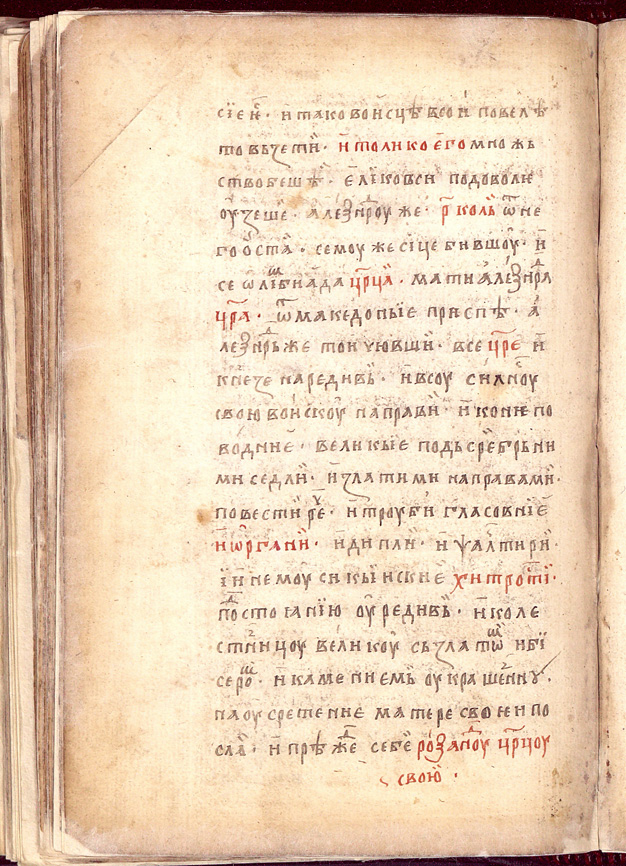 сїен҃ · и тако воисцѣ всои повелѣ
то вьꙁети · и толико его множь
ство беше · елїко вси подоволꙗ
оуꙁеше · алеѯнⷣроу же · р҃ коль ѿ не
го оста · семоу же сїце бившоу · и
се ѡлїбиада цр҃ца · мати алеѯнⷣра
цр҃а · ѿ македонїе приспѣ · а
леѯнⷣрь же тои чювши · все цр҃е и
кнеꙁе наредивь · и всоу силноу
свою воискоу направи · и коние по
водние · великые подь сребрьни
ми седли · и ꙁлатими направами ·
повести рⷱе · и троуби гласовнїе
и ѡргани · и дипли · и ѱалтири ·
їи немоусикыиские хитроⷭтї ·
по достоꙗнїю оуредивь · и коле
стницоу великоу сь ꙁлатѡⷨ и бї
сероⷨ · и каменїемь оукрашенну ·
на оусретение матере своѥи по
сла · и прѣжⷣе себе роѯандоу цр҃цоу
свою ·